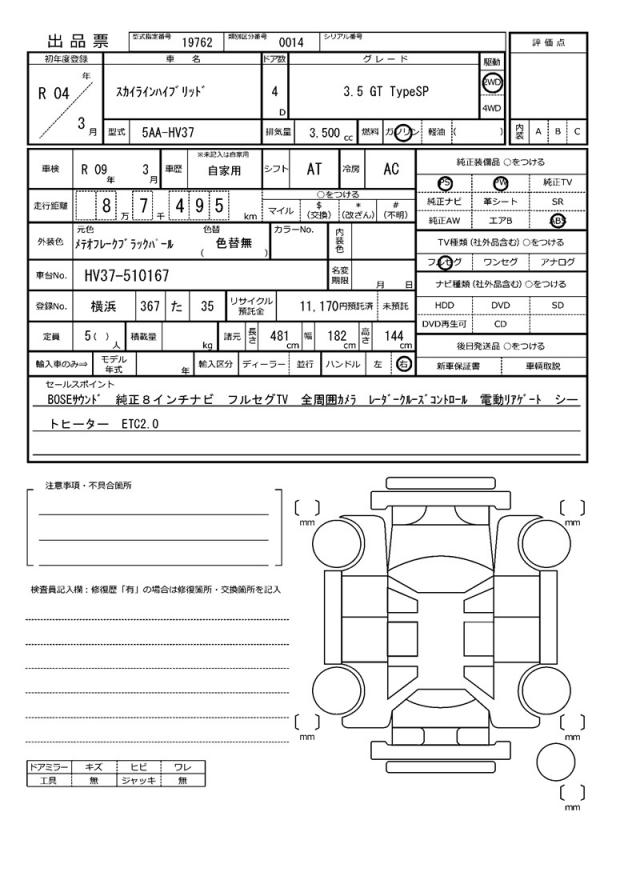 出品票 型式指定番号 19762 類別区分番号 0014 シリアル番号
評価点
初年度登録 車名 ドア数 グレード 駆動
R 04 年 3 月 スカイラインハイブリッド 4 D 3.5 GT TypeSP 2WD 4WD
型式 5AA-HV37 排気量 3,500 cc 燃料 ガソリン 軽油 ( ) 内装 A B C
車検 R 09 年 3 月 車歴 ※未記入は自家用 自家用 シフト AT 冷房 AC
純正装備品 ○をつける
PS PW 純正TV
走行距離 8 万 7 千 4 9 5 km ○をつける マイル $ (交換) * (改ざん) # (不明)
純正ナビ 革シート SR
純正AW エアB ABS
外装色 元色 メテオフレークブラックパール 色替 ( 色替無 ) カラーNo. 内装色
TV種類 (社外品含む) ○をつける
フルセグ ワンセグ アナログ
車台No. HV37-510167 名変期限 月 日
ナビ種類 (社外品含む) ○をつける
登録No. 横浜 367 た 35 リサイクル預託金 11,170円預託済 未預託
HDD DVD SD
DVD再生可 CD
定員 5 ( ) 人 積載量 kg 諸元 長さ 481 cm 幅 182 cm 高さ 144 cm
後日発送品 ○をつける
輸入車のみ⇒ モデル年式 年 輸入区分 ディーラー 並行 ハンドル 左 右
新車保証書 車輌取説
セールスポイント
BOSEサウンド 純正8インチナビ フルセグTV 全周囲カメラ レーダークルーズコントロール 電動リアゲート シー
トヒーター ETC2.0
注意事項・不具合箇所
検査員記入欄:修復歴「有」の場合は修復箇所・交換箇所を記入
mm
mm
mm
mm
mm
ドアミラー キズ ヒビ ワレ
工具 無 ジャッキ 無